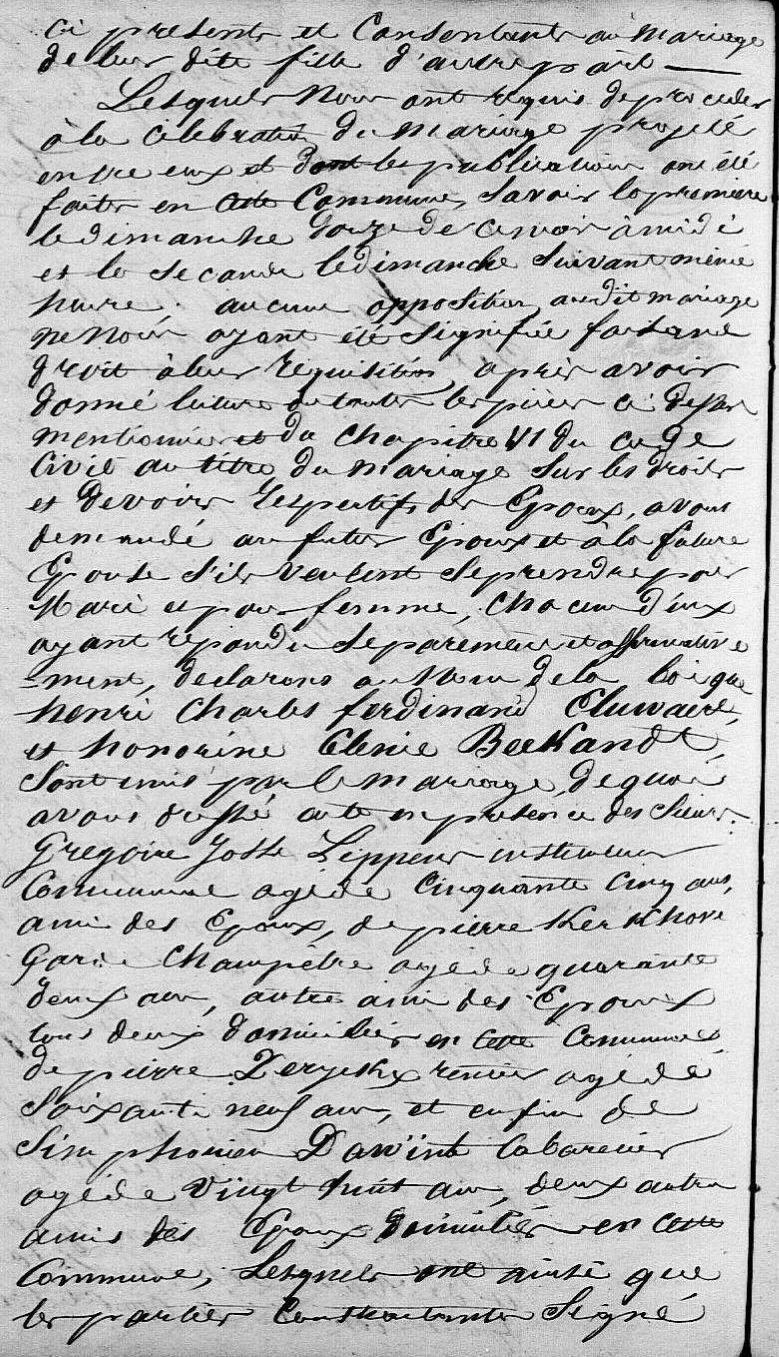 ci presents et Consentants au Mariage
de leur dite fille d'autre part —
Lesquels Nous ont requis de proceder
à la Célébration du Mariage projeté
entre eux et dont les publications ont été
faites en cette Commune, Savoir la premiere
le dimanche douze de ce mois à midi
et la Seconde le dimanche Suivant même
heure, aucune opposition audit mariage
ne Nous ayant été Signifiée faisant
droit à leur requisition, après avoir
donné lecture de toutes les pièces ci dessus
mentionnées et du Chapitre VI du code
Civil au titre du Mariage Sur les droits
et devoirs respectifs des Epoux, avons
demandé au futur Epoux et à la future
Epouse S'ils veulent Se prendre pour
Mari et pour femme, Chacun d'eux
ayant répondu Séparément et affirmative
=ment, declarons au Nom de la loi que
henri Charles ferdinand Cluwaert,
et honorine Clenie Beekandt,
Sont unis par le mariage, de quoi
avons dressé acte en presence des Sieurs
Gregoire Josse Lippens instituteur
Communal agé de Cinquante Cinq ans,
ami des Epoux, de pierre Kerkhove
Garde Champêtre agé de quarante
deux ans, autre ami des Epoux
tous deux domiciliés en cette Commune
de pierre rentier agé de
Soixante neuf ans, et enfin de
Simphorien Dawint Cabaretier
agé de Vingt huit ans, deux autres
amis des Epoux domiciliés en cette
Commune, Lesquels ont ainsi que
les parties Contractantes Signé